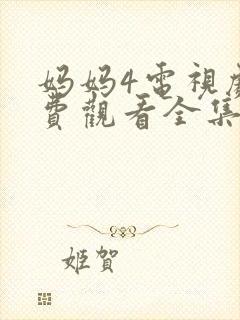 妈妈4電視
費觀看全集
姬賀